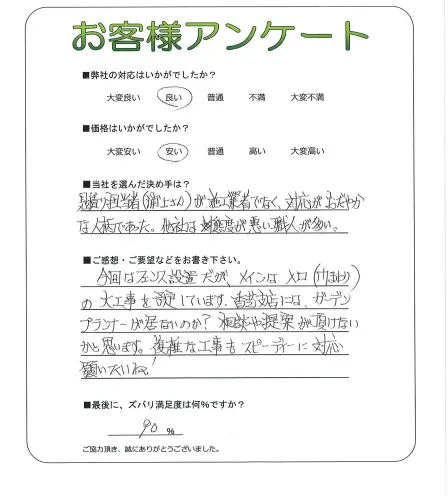 お客様アンケート
■弊社の対応はいかがでしたか？
大変良い 良い 普通 不満 大変不満
■価格はいかがでしたか？
大変安い 安い 普通 高い 大変高い
■当社を選んだ決め手は？
見積り担当者(浦上さん)が施工業者でなく、対応がおだやか
な人柄であった。他社は対応態度が悪い職人が多い。
■ご感想・ご要望などをお書き下さい。
今回はフェンス設置だが、メインは入口
の大工事を予定しています。香芝支店には、ガーデン
プランナーが居ないのか？相談や提案が頂けない
かと思います。複雑な工事もスピーディーに対応
願いたいね！
■最後に、ズバリ満足度は何％ですか？
90 %
ご協力頂き、誠にありがとうございました。